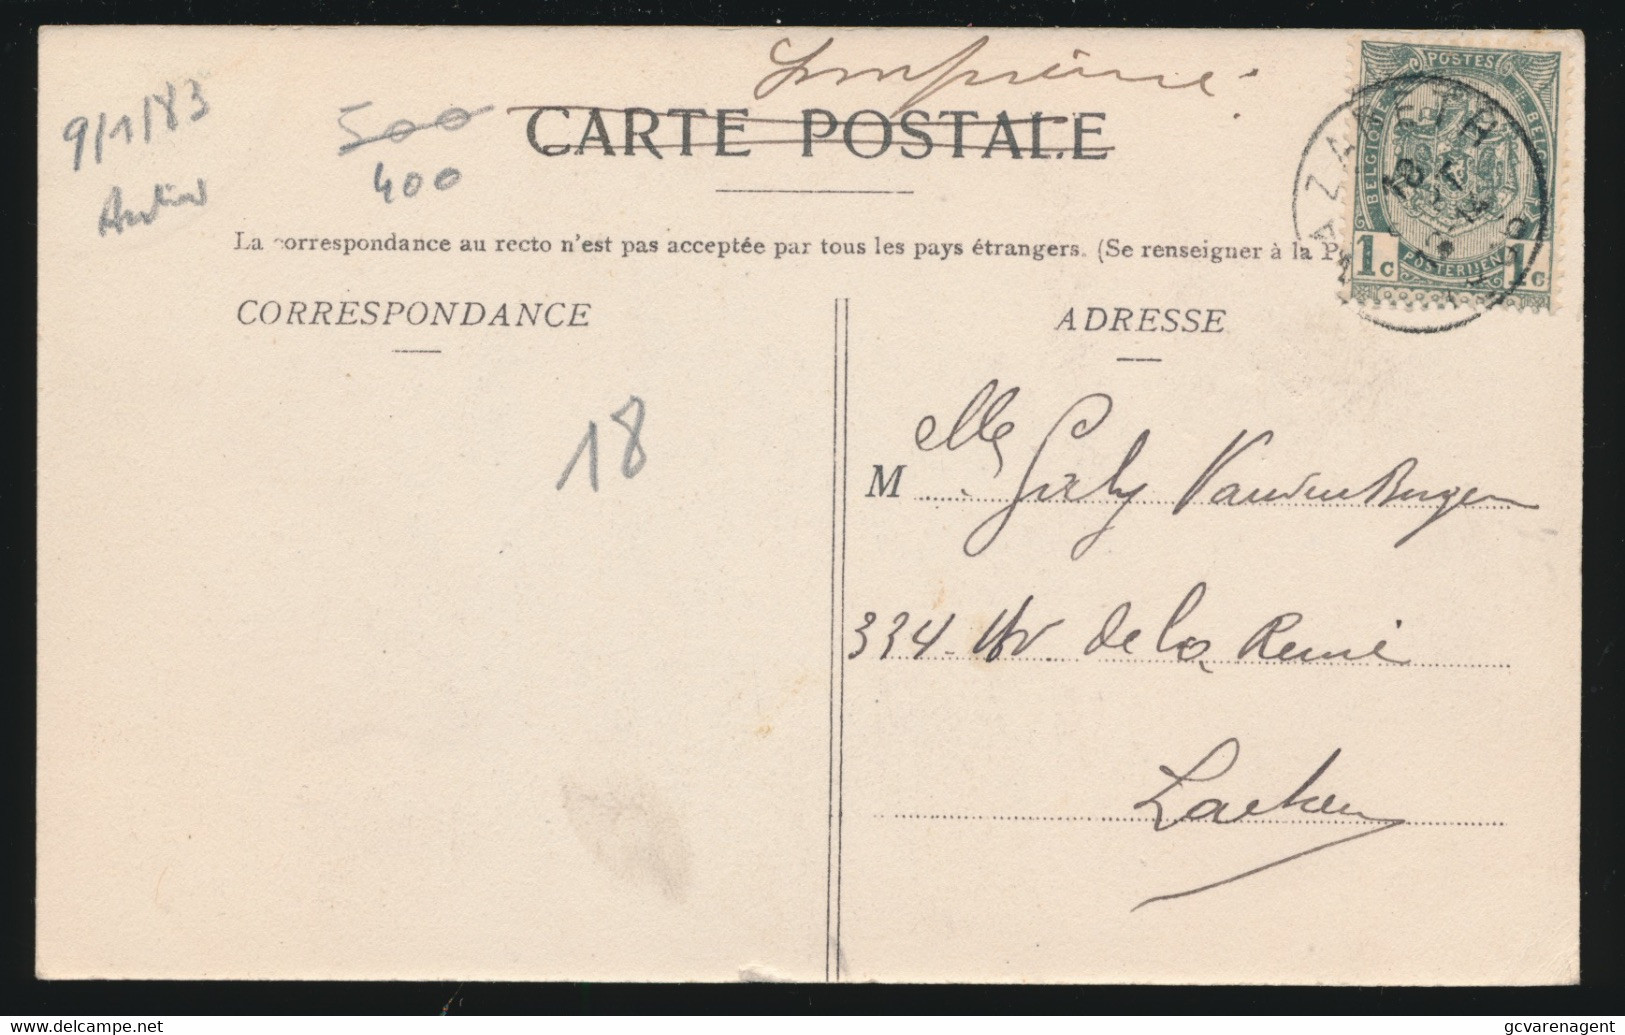 Imprimé
9/1/83
500
CARTE POSTALE
400
La correspondance au recto n'est pas acceptée par tous les pays étrangers. (Se renseigner à la P
POSTES
BELGIQUE
BELGIË
POSTERIJEN
1c 1c
NAZARETH
CORRESPONDANCE
ADRESSE
18
Melle Gaby Vanden Bergen
334 Av. de la Reine
Laeken
gcvarenagent
delcampe.net